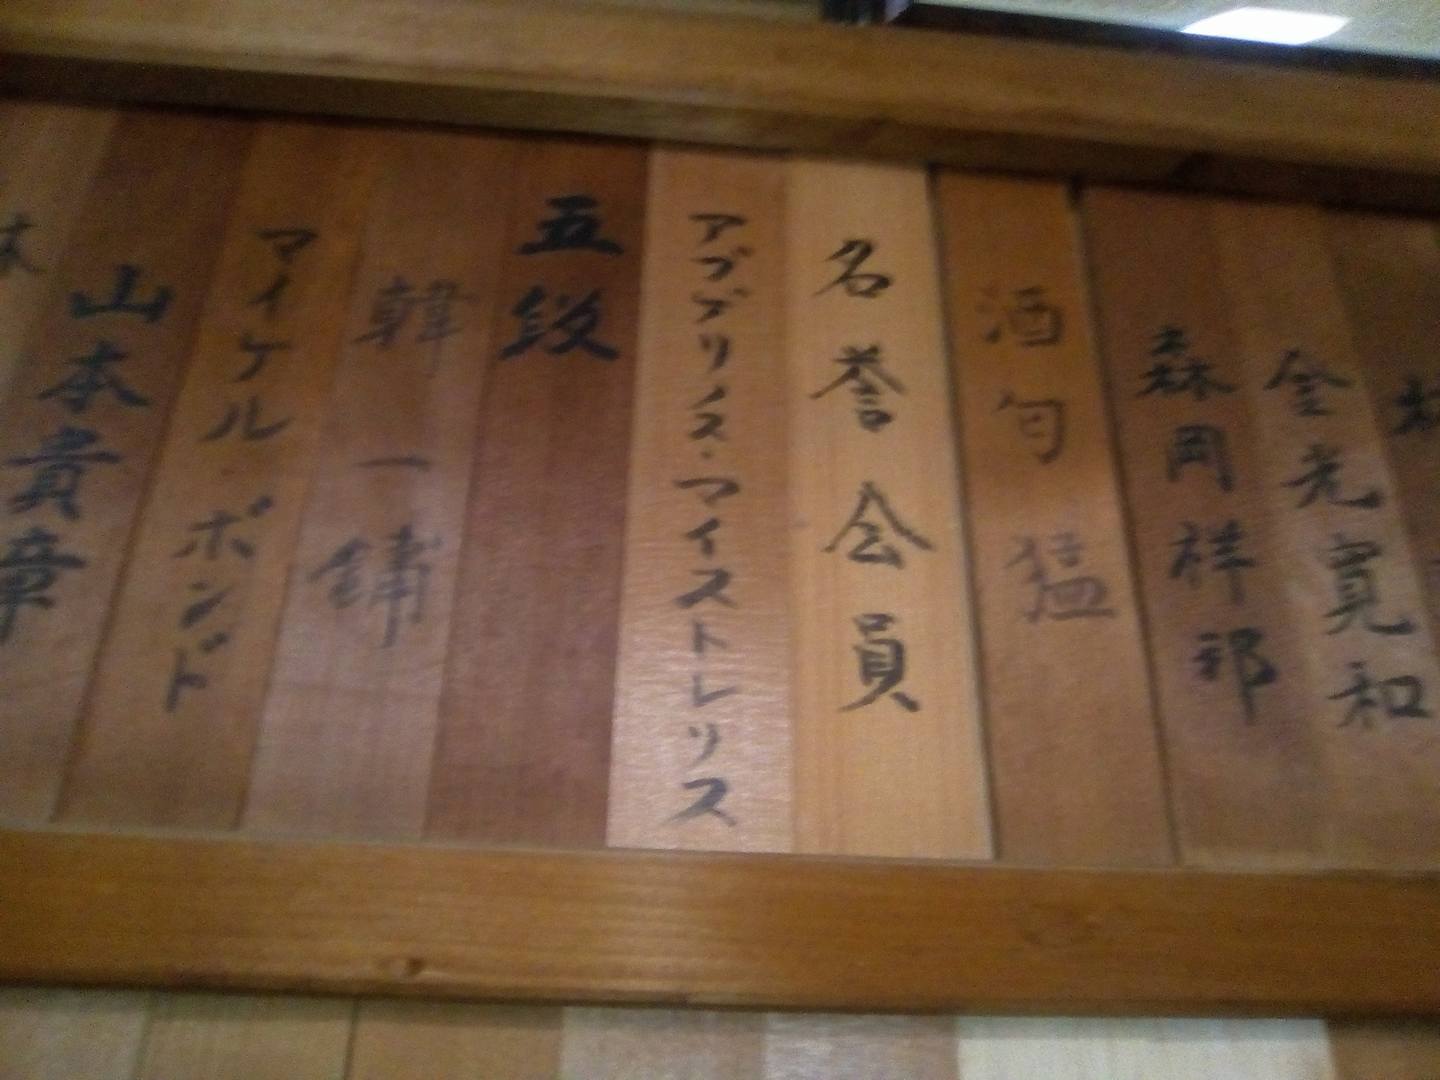 金光寛和
森岡祥郎
酒匂猛
名誉会員
アブブリノス・マイストレリス
五段
韓一鏞
マイケル・ボンド
山本貴章